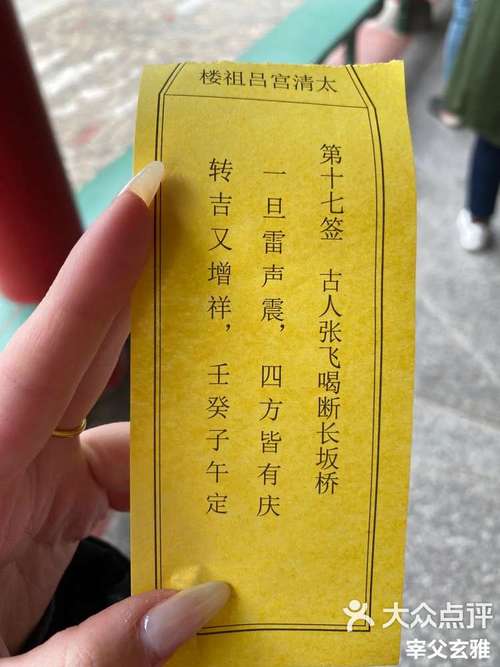 太清宫吕祖楼
第十七签 古人张飞喝断长坂桥
一旦雷声震，四方皆有庆
转吉又增祥，壬癸子午定
大众点评
宰父玄雅